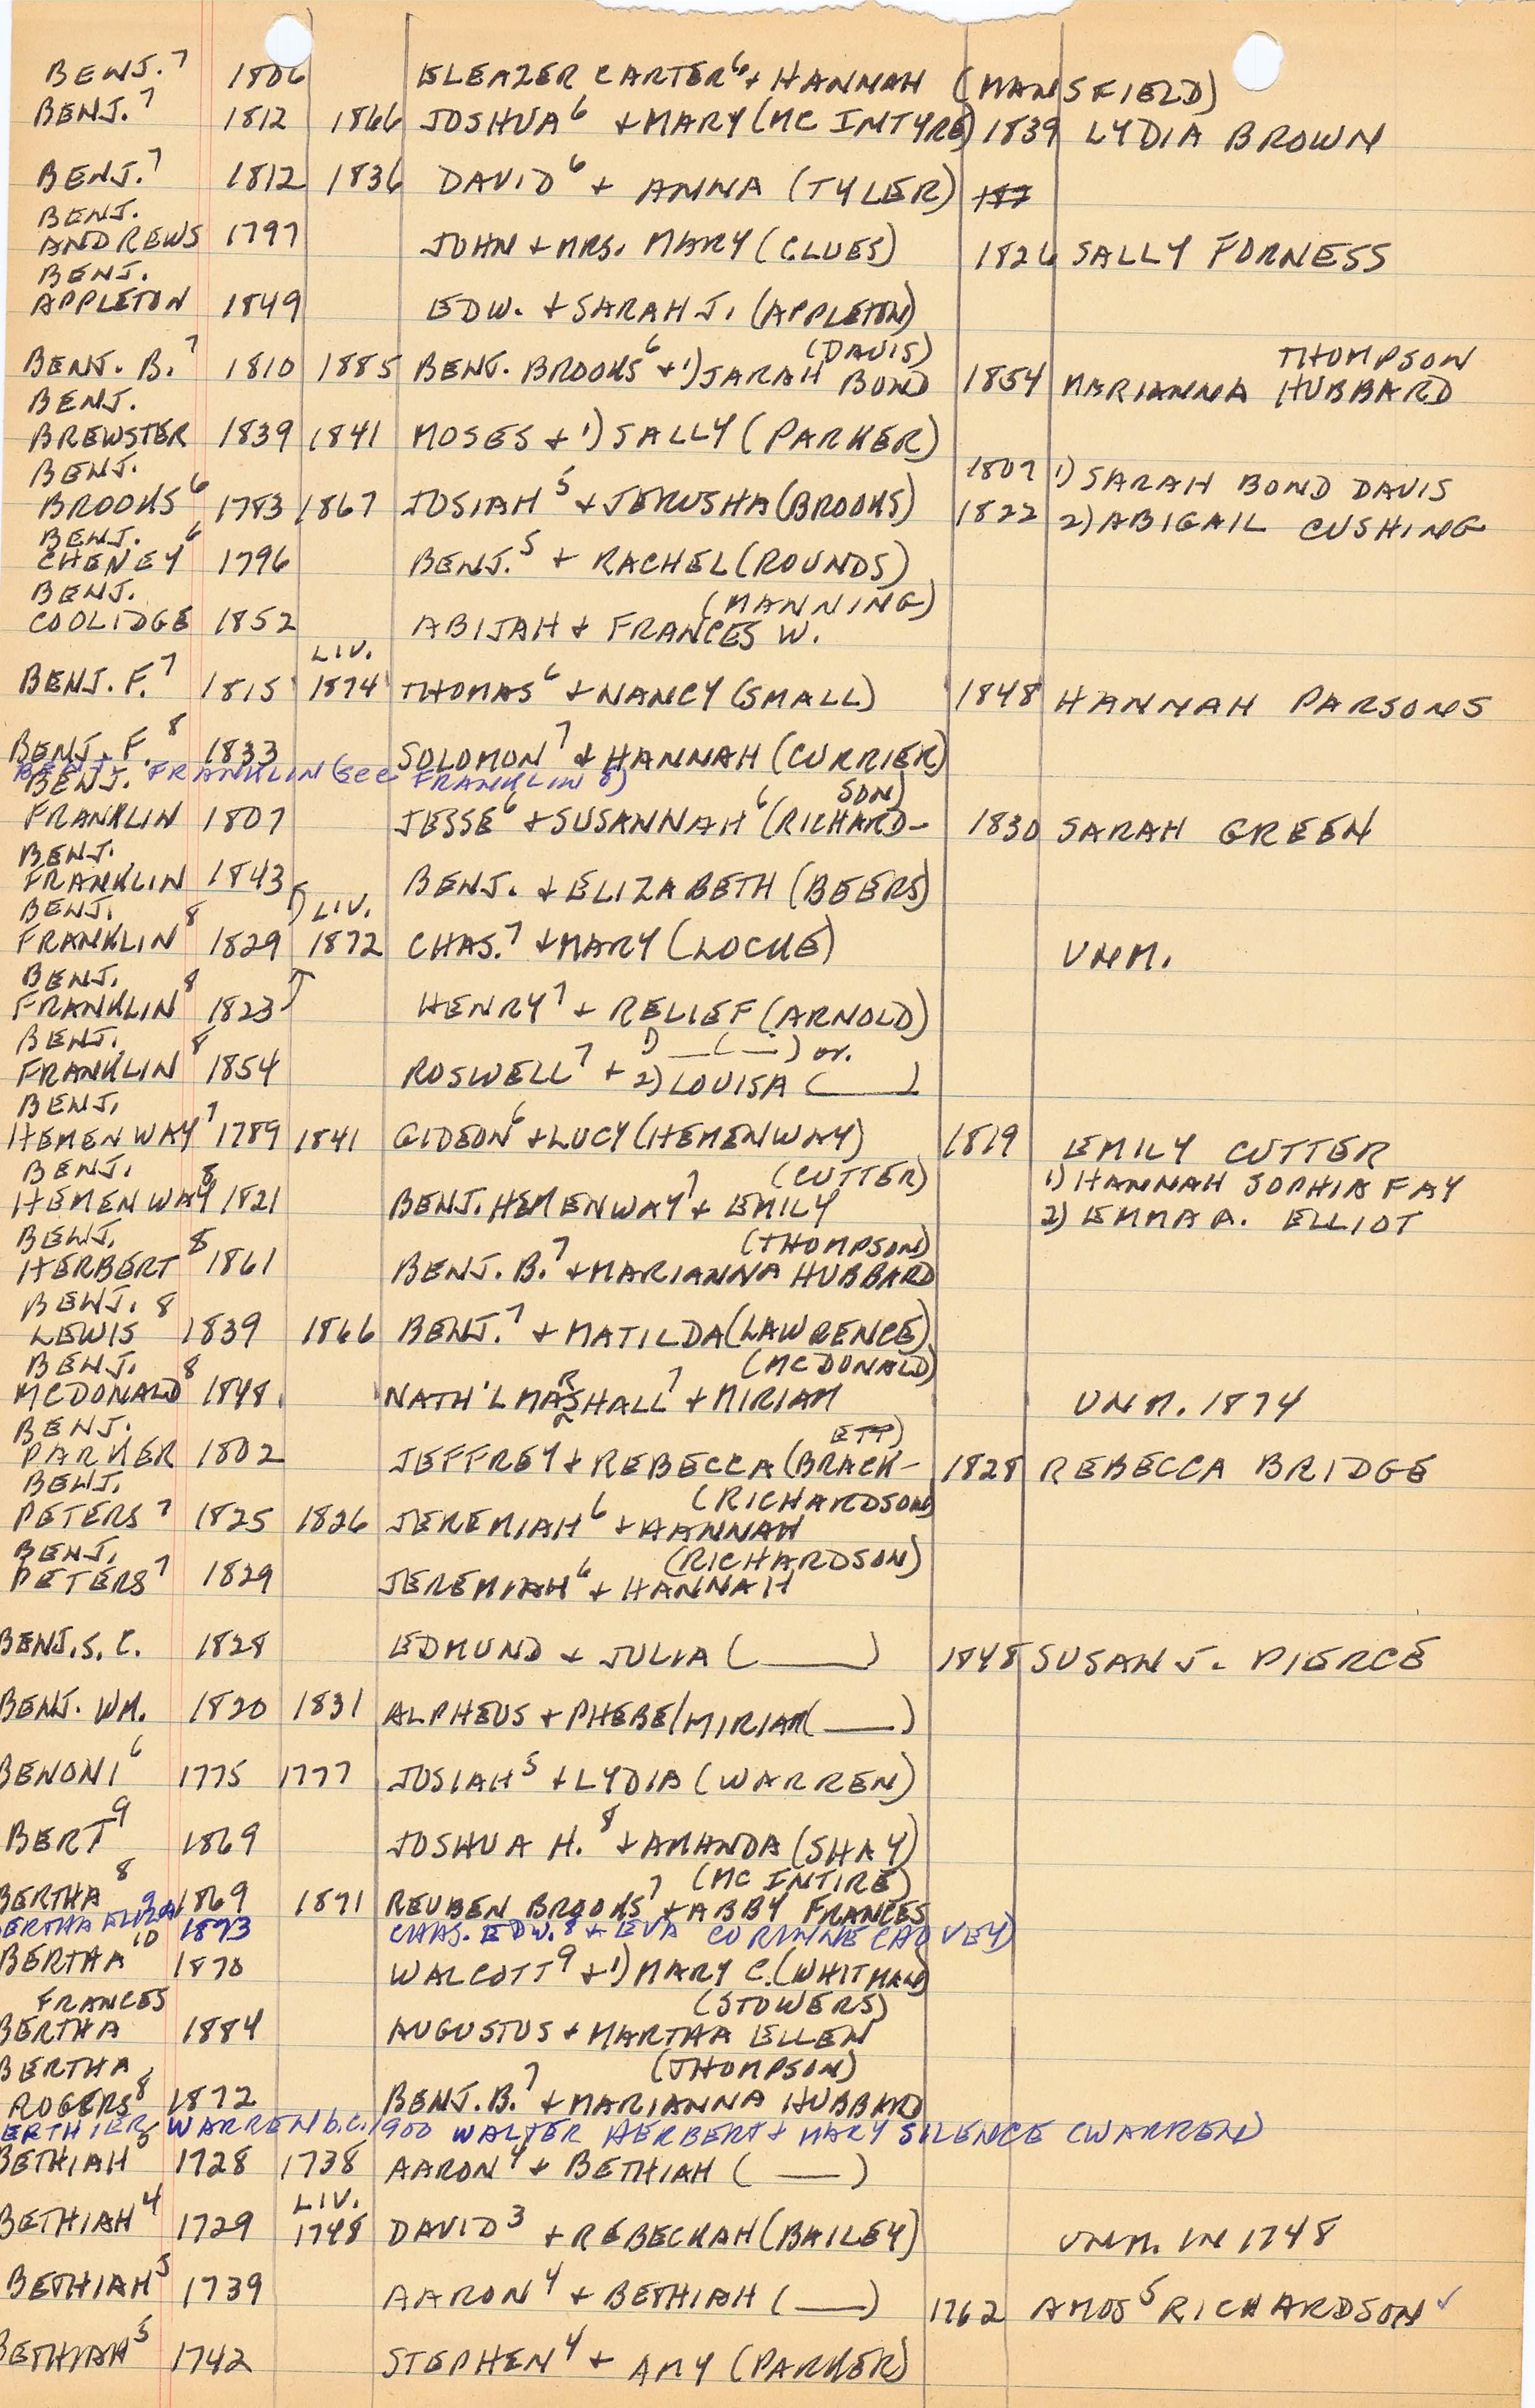 BENJ.⁷ 1806 ELEAZER CARTER⁶ + HANNAH (MANSFIELD)
BENJ.⁷ 1812 1866 JOSHUA⁶ + MARY (MC INTYRE) 1839 LYDIA BROWN
BENJ.⁷ 1812 1836 DAVID⁶ + ANNA (TYLER)
BENJ.
ANDREWS 1797 JOHN + MRS. MARY (CLUES) 1826 SALLY FORNESS
BENJ.
APPLETON 1849 EDW. + SARAH J. (APPLETON)
(DAVIS) THOMPSON
BENJ. B.⁷ 1810 1885 BENJ. BROOKS⁶ + 1) SARAH BOND 1854 MARIANNA HUBBARD
BENJ.
BREWSTER 1839 1841 MOSES + 1) SALLY (PARKER)
BENJ. 1807 1) SARAH BOND DAVIS
BROOKS⁶ 1783 1867 JOSIAH⁵ + JERUSHA (BROOKS) 1822 2) ABIGAIL CUSHING
BENJ.
CHENEY⁶ 1796 BENJ.⁵ + RACHEL (ROUNDS)
BENJ. (MANNING)
COOLIDGE 1852 ABIJAH + FRANCES W.
LIV.
BENJ. F.⁷ 1815 1874 THOMAS⁶ + NANCY (SMALL) 1848 HANNAH PARSONS
BENJ. F.⁸ 1833 SOLOMON⁷ + HANNAH (CURRIER)
BENJ. FRANKLIN (SEE FRANKLIN 8)
BENJ. SON)
FRANKLIN 1807 JESSE⁶ + SUSANNAH⁶ (RICHARD- 1830 SARAH GREEN
BENJ.
FRANKLIN 1843 BENJ. + ELIZABETH (BEERS)
BENJ. LIV.
FRANKLIN⁸ 1829 1872 CHAS.⁷ + MARY (LOCKE) UNM.
BENJ.
FRANKLIN⁸ 1823 HENRY⁷ + RELIEF (ARNOLD)
BENJ. 1) ___ (___) or.
FRANKLIN⁸ 1854 ROSWELL⁷ + 2) LOUISA (____)
BENJ.
HEMENWAY⁷ 1789 1841 GIDEON⁶ + LUCY (HEMENWAY) 1819 EMILY CUTTER
BENJ. (CUTTER) 1) HANNAH SOPHIA FAY
HEMENWAY⁸ 1821 BENJ. HEMENWAY⁷ + EMILY 2) EMMA A. ELLIOT
BENJ. (THOMPSON)
HERBERT⁸ 1861 BENJ. B.⁷ + MARIANNA HUBBARD
BENJ.
LEWIS⁸ 1839 1866 BENJ.⁷ + MATILDA (LAWRENCE)
BENJ. (MCDONALD)
MCDONALD⁸ 1848 NATH'L MARSHALL⁷ + MIRIAM UNM. 1874
BENJ. ETT)
PARKER 1802 JEFFREY + REBECCA (BRACK- 1828 REBECCA BRIDGE
BENJ. (RICHARDSON)
PETERS⁷ 1825 1826 JEREMIAH⁶ + HANNAH
BENJ. (RICHARDSON)
PETERS⁷ 1829 JEREMIAH⁶ + HANNAH
BENJ. S. C. 1828 EDMUND + JULIA (____) 1848 SUSAN J. PIERCE
BENJ. WM. 1820 1831 ALPHEUS + PHEBE/MIRIAM (____)
BENONI⁶ 1775 1777 JOSIAH⁵ + LYDIA (WARREN)
BERT⁹ 1869 JOSHUA H.⁸ + AMANDA (SHAY)
(MC INTIRE)
BERTHA⁸ 1869 1871 REUBEN BROOKS⁷ + ABBY FRANCES
ERTHA ELIZA⁹ 1873 CHAS. EDW.⁸ + EVA CORINNE (ADVEY)
BERTHA¹⁰ 1870 WALCOTT⁹ + 1) MARY C. (WHITMAN)
FRANCES (STOWERS)
BERTHA 1884 AUGUSTUS + MARTHA ELLEN
BERTHA (THOMPSON)
ROGERS⁸ 1872 BENJ. B.⁷ + MARIANNA HUBBARD
ERTHIER WARREN b.c. 1900 WALTER HERBERT + MARY SILENCE (WARREN)
BETHIAH⁵ 1728 1738 AARON⁴ + BETHIAH (___)
LIV.
BETHIAH⁴ 1729 1748 DAVID³ + REBECKAH (BAILEY) UNM. IN 1748
BETHIAH⁵ 1739 AARON⁴ + BETHIAH (____) 1762 AMOS⁵ RICHARDSON ✓
BETHIAH⁵ 1742 STEPHEN⁴ + AMY (PARKER)